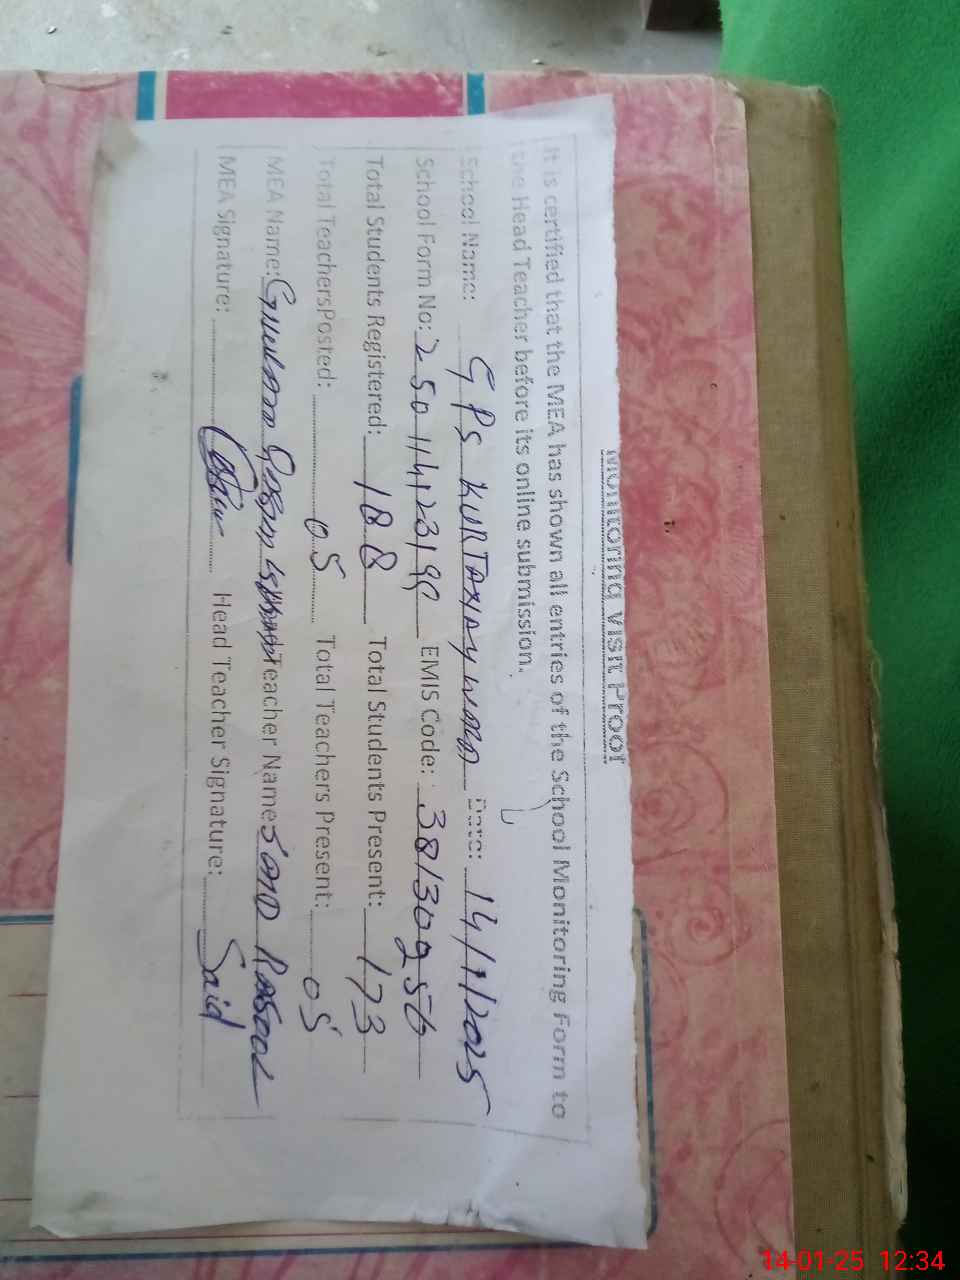 Monitoring Visit Proof
It is certified that the MEA has shown all entries of the School Monitoring Form to
the Head Teacher before its online submission.
School Name: GPS KURTAMAYWARA Date: 14/1/2025
School Form No: EMIS Code: 38130956
Total Students Registered: 188 Total Students Present: 173
Total Teachers Posted: 05 Total Teachers Present: 05
MEA Name: Teacher Name: Rasool
MEA Signature: Head Teacher Signature: Said
14-01-25 12:34